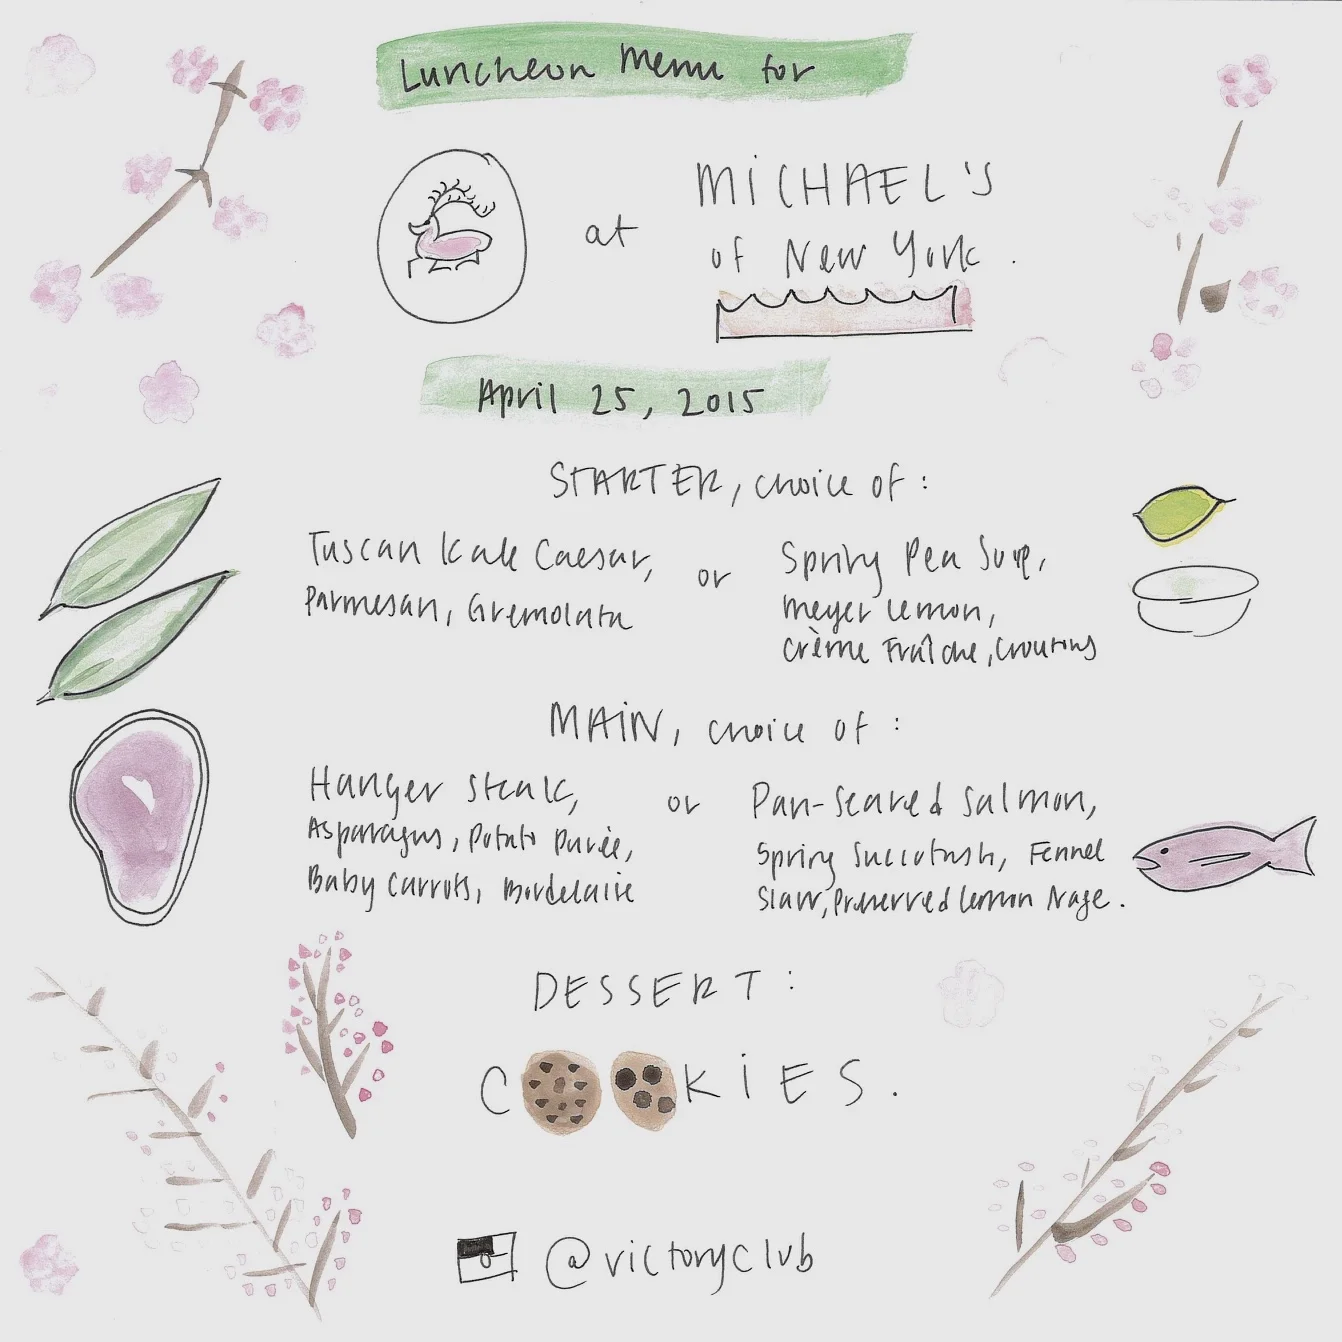 Luncheon Menu for
at
MICHAEL'S
of New York.
April 25, 2015
STARTER, choice of:
Tuscan Kale Caesar,
Parmesan, Gremolata
or
Spring Pea Soup,
Meyer Lemon,
Crème Fraîche, Croutons
MAIN, choice of:
Hanger Steak,
Asparagus, Potato Purée,
Baby Carrots, Bordelaise
or
Pan-Seared Salmon,
Spring Succotash, Fennel
Slaw, Preserved Lemon Nage.
DESSERT:
COOKIES.
@victoryclub